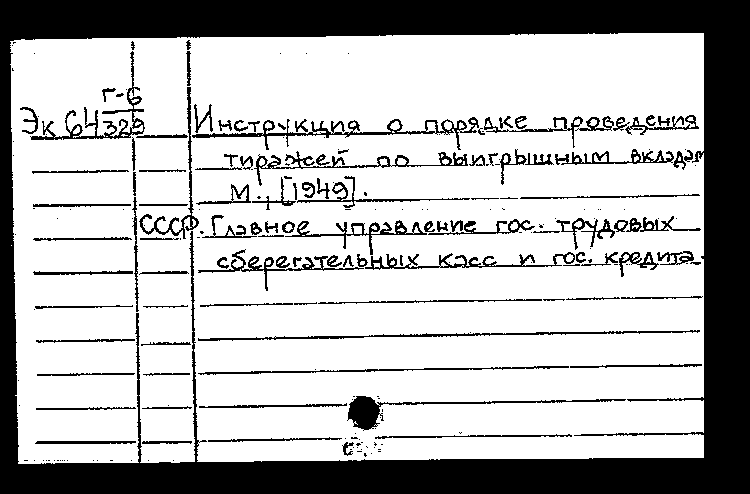 Г-6
Эк 64 329 Инструкция о порядке проведения
тиражей по выигрышным вкладам
М., [1949].
СССР. Главное управление гос. трудовых
сберегательных касс и гос. кредита.